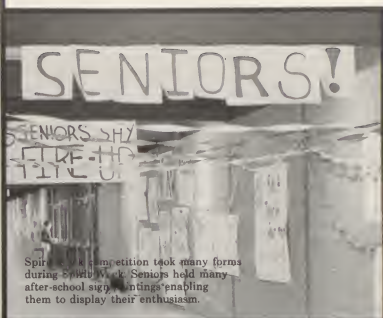 SENIORS!
SENIORS SHY
FIRE-UP
competition took many forms
during Spirit Week. Seniors held many
after-school sign paintings enabling
them to display their enthusiasm.